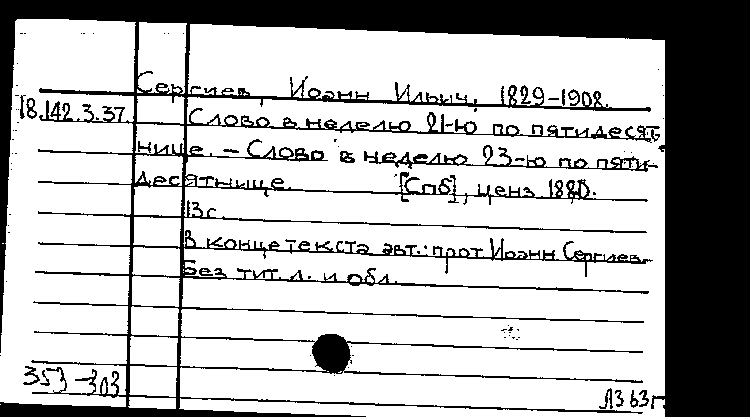 Сергиев, Иоанн Ильич, 1829-1908.
18.142.3.37. Слово в неделю 21-ю по пятидесят-
нице. - Слово в неделю 23-ю по пяти-
десятнице. [Спб], ценз 1880.
13с.
В конце текста авт.: прот Иоанн Сергиев.
Без тит. л. и обл.
353-303